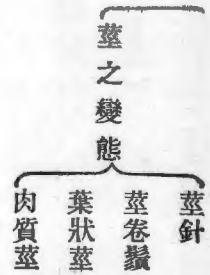 莖之變態
莖針
莖卷鬚
葉狀莖
肉質莖